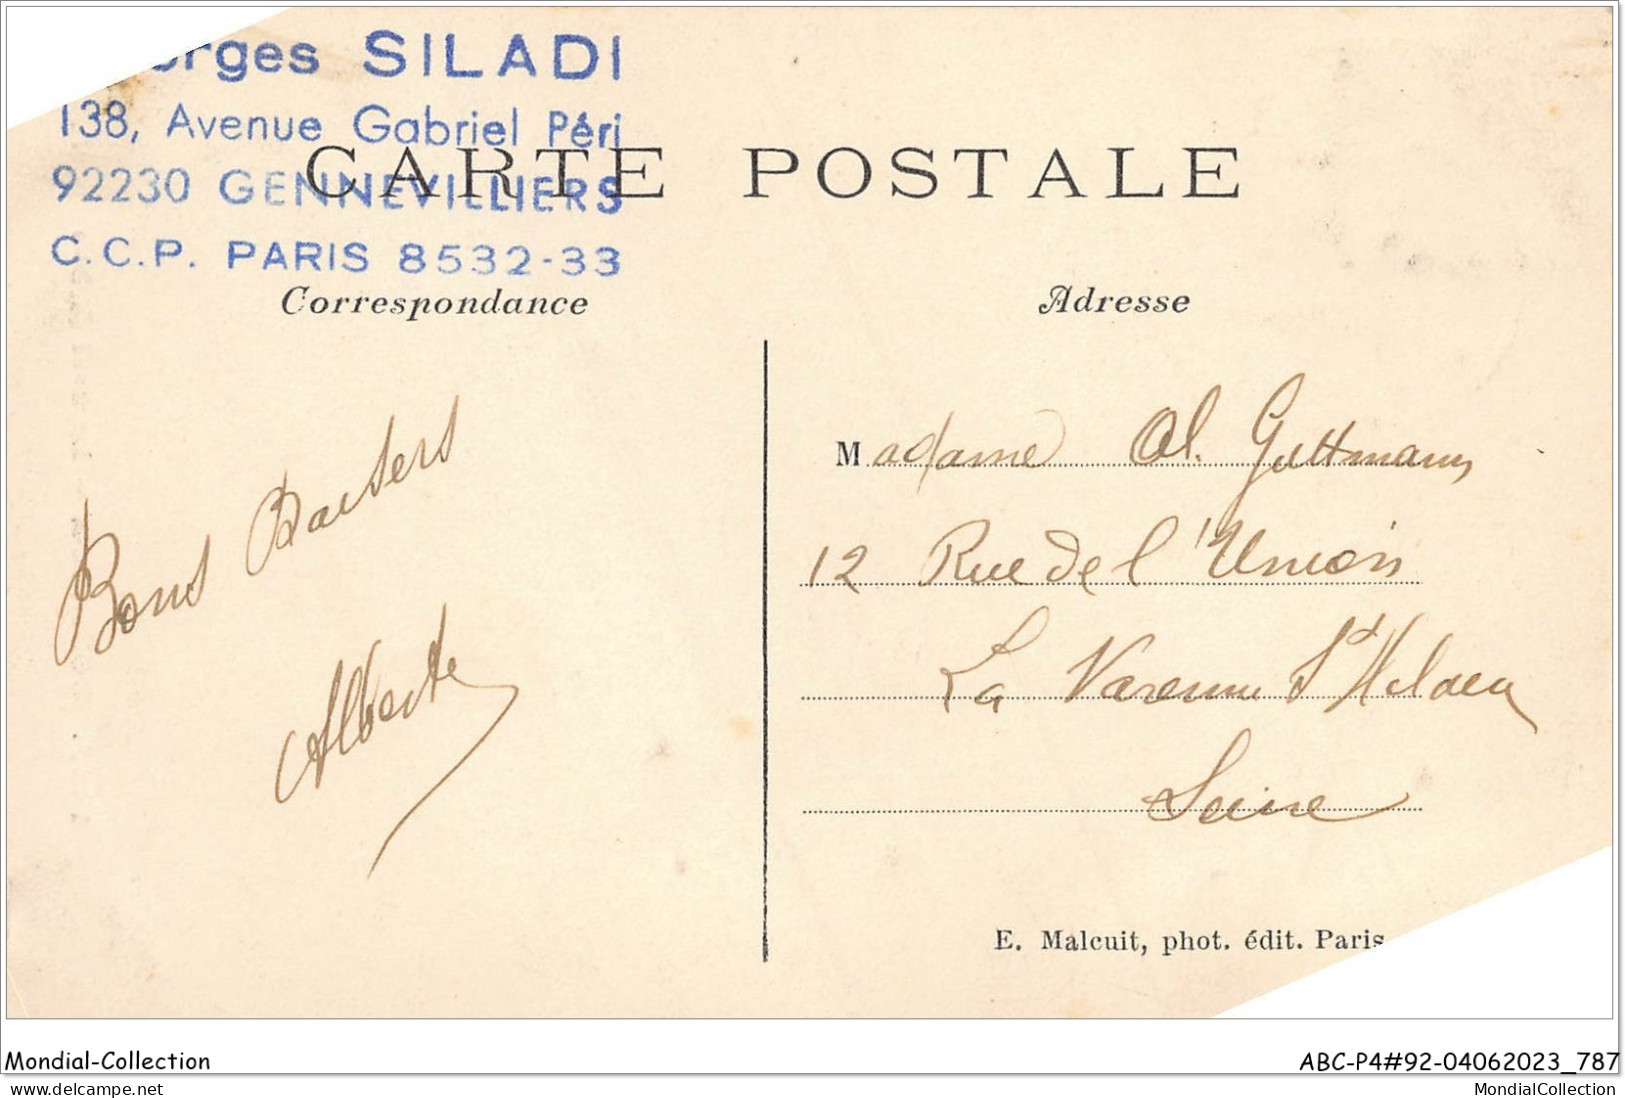 orges SILADI
138, Avenue Gabriel Péri
92230 GENNEVILLIERS
C.C.P. PARIS 8532-33
CARTE POSTALE
Correspondance
Adresse
Bons Baisers
Alberte
Madame Al. Guttmann
12 Rue de l'Union
La Varenne St Hilaire
Seine
E. Malcuit, phot. édit. Paris
Mondial-Collection
ABC-P4#92-04062023_787
www.delcampe.net
MondialCollection